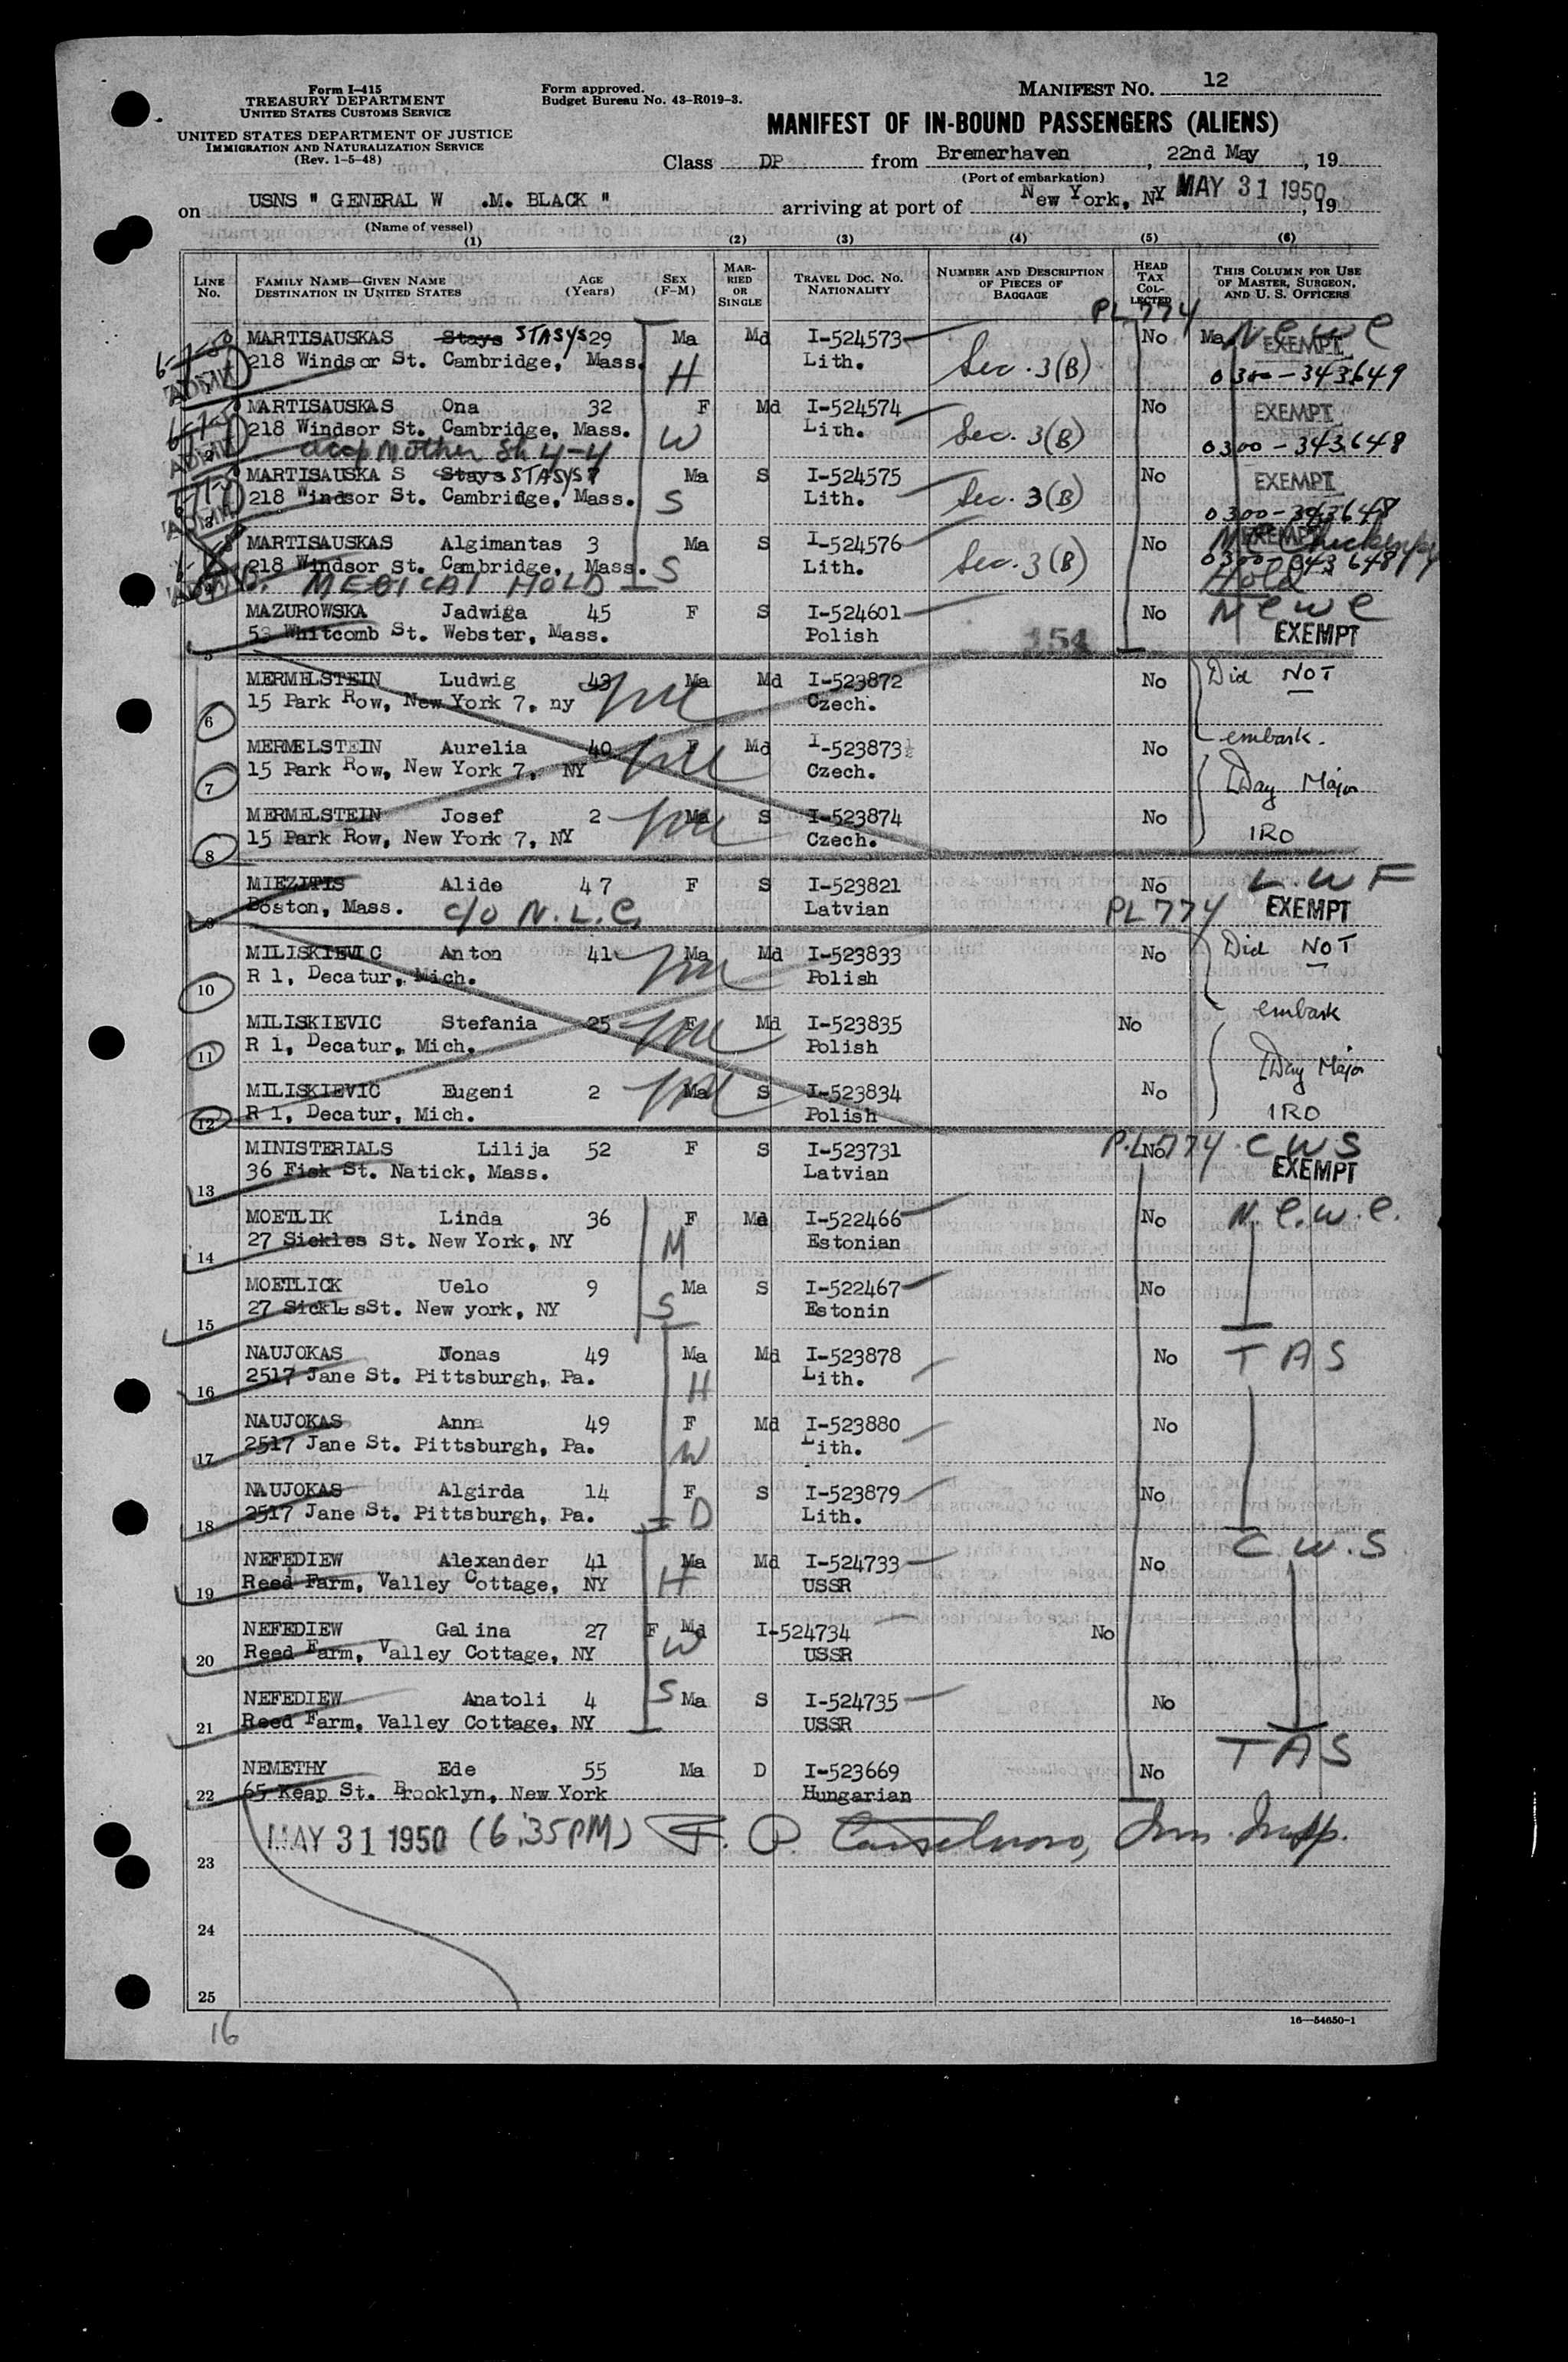 Form I-415
TREASURY DEPARTMENT
UNITED STATES CUSTOMS SERVICE
UNITED STATES DEPARTMENT OF JUSTICE
IMMIGRATION AND NATURALIZATION SERVICE
(Rev. 1-5-48)
Form approved.
Budget Bureau No. 43-R019-3.
MANIFEST NO. 12
MANIFEST OF IN-BOUND PASSENGERS (ALIENS)
Class DP from Bremerhaven, 22nd May, 19
(Port of embarkation)
on USNS " GENERAL W .M. BLACK " arriving at port of New York, NY MAY 31 1950, 19
(Name of vessel)
(1) (2) (3) (4) (5) (6)
LINE No. FAMILY NAME—GIVEN NAME DESTINATION IN UNITED STATES AGE (Years) SEX (F-M) MARRIED OR SINGLE TRAVEL DOC. NO. NATIONALITY NUMBER AND DESCRIPTION OF PIECES OF BAGGAGE HEAD TAX COLLECTED THIS COLUMN FOR USE OF MASTER, SURGEON, AND U. S. OFFICERS
PL 774
MARTISAUSKAS Stays STASYS 29 Ma Md I-524573 No Ma N C W C
218 Windsor St. Cambridge, Mass. H Lith. Sec. 3(B) EXEMPT
0300-343649
MARTISAUSKAS Ona 32 F Md I-524574 No EXEMPT
218 Windsor St. Cambridge, Mass. W Lith. Sec. 3(B) 0300-343648
accp Mother Sh 4-4
MARTISAUSKA S Stays STASYS 7 Ma S I-524575 No EXEMPT
218 Windsor St. Cambridge, Mass. S Lith. Sec. 3(B) 0300-343648
MARTISAUSKAS Algimantas 3 Ma S I-524576 No EXEMPT
218 Windsor St. Cambridge, Mass. S Lith. Sec. 3(B) 0300-343648
MEDICAL HOLD Hold
MAZUROWSKA Jadwiga 45 F S I-524601 No N C W C
53 Whitcomb St. Webster, Mass. Polish 151 EXEMPT
5
MERMELSTEIN Ludwig 43 Ma Md I-523872 No Did NOT
15 Park Row, New York 7, ny Czech.
6 embark.
MERMELSTEIN Aurelia 40 F Md I-523873 No
15 Park Row, New York 7, NY Czech.
7 Day Major
MERMELSTEIN Josef 2 Ma S I-523874 No
15 Park Row, New York 7, NY Czech. IRO
8
MIEZITIS Alide 47 F S I-523821 No L.W F
Boston, Mass. c/o N.L.C. Latvian PL 774 EXEMPT
9
MILISKIEVIC Anton 41 Ma Md I-523833 No Did NOT
R 1, Decatur, Mich. Polish
10 embark
MILISKIEVIC Stefania 25 F Md I-523835 No
R 1, Decatur, Mich. Polish
11 Day Major
MILISKIEVIC Eugeni 2 Ma S I-523834 No
R 1, Decatur, Mich. Polish IRO
12
MINISTERIALS Lilija 52 F S I-523731 No P.L. 774 C W S
36 Fisk St. Natick, Mass. Latvian EXEMPT
13
MOETLIK Linda 36 F Md I-522466 No N.C.W.C.
27 Sickles St. New York, NY M Estonian
14
MOETLICK Uelo 9 Ma S I-522467 No
27 SicklesSt. New york, NY S Estonin
15
NAUJOKAS Jonas 49 Ma Md I-523878 No T A S
2517 Jane St. Pittsburgh, Pa. H Lith.
16
NAUJOKAS Anna 49 F Md I-523880 No
2517 Jane St. Pittsburgh, Pa. W Lith.
17
NAUJOKAS Algirda 14 F S I-523879 No
2517 Jane St. Pittsburgh, Pa. D Lith.
18
NEFEDIEW Alexander 41 Ma Md I-524733 No C.W.S
Reed Farm, Valley Cottage, NY H USSR
19
NEFEDIEW Galina 27 F Md I-524734 No
Reed Farm, Valley Cottage, NY W USSR
20
NEFEDIEW Anatoli 4 S Ma S I-524735 No
Reed Farm, Valley Cottage, NY USSR
21
NEMETHY Ede 55 Ma D I-523669 No T A S
65 Keap St. Brooklyn, New York Hungarian
22
MAY 31 1950 (6:35PM) Imm. Insp.
23
24
25
16
16—54650-1